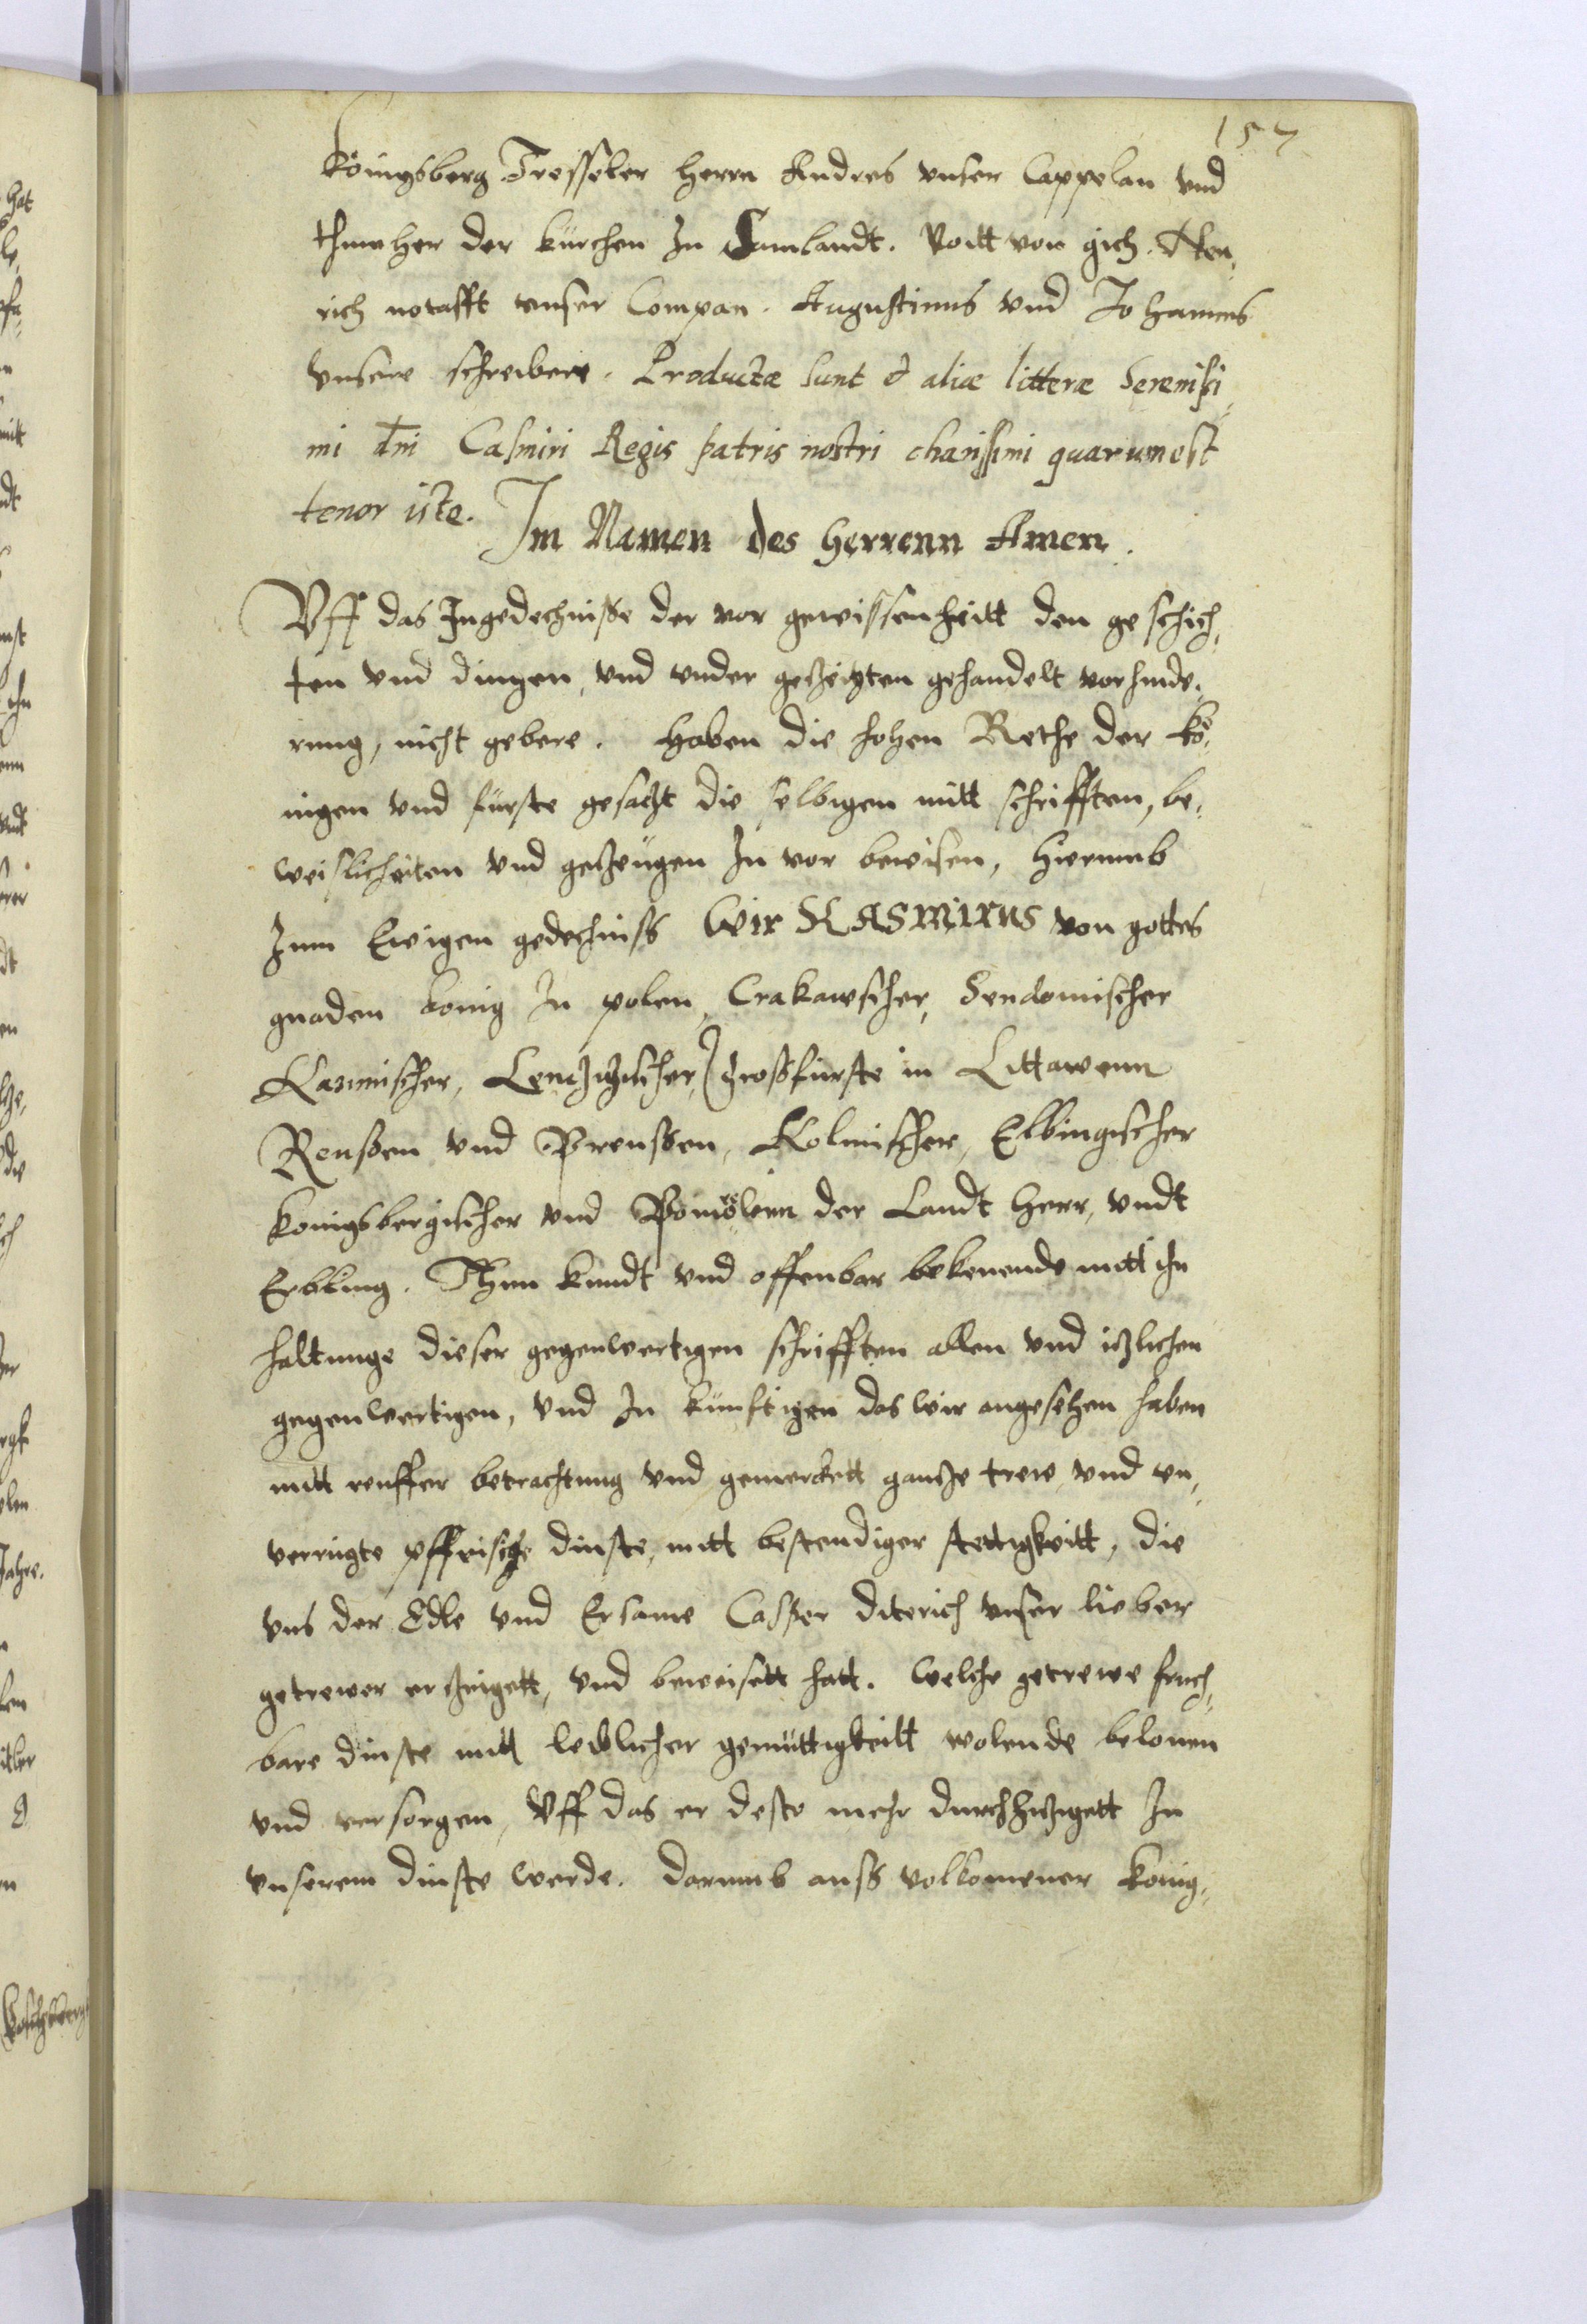 157
Königsberg Tresseler herrn Andres vnser Cappelan vnd
thumher der kürchen In Samlandt. Voitt von gich. Hen,
rich notafft vnser Compan. Augustinus vnd Johannes
vnsere schreibere. Productæ sunt & aliæ litteræ Serenissi,
mi dni Casmiri Regis patris nostri charissimi quarum est
tenor iste.
Im Namen des Herrenn Amen.
Vff das Ingedechnisse der vor gewissenheitt den geschich,
ten vnd dingen, vnd vnder gezeitzten gehandelt vorhinde,
rung, nicht gebere. Haben die hohen Rethe der kö,
nigen vnd fürste gesacht die selbigen mitt schrifften, be,
weislicheiten vnd gezeugen In vor bewisen, hierumb
Zum Ewigen gedechniss Wir KASMIRUS von gottes
gnaden konig In polen, Crakawscher, Sendomischer
Kazimischer, Lenczizischer, Grossfurste in Littawenn
Reussen vnd Preussen, Kolmischer, Elbingischer
Konigsbergischer vnd Pomölenn der Landt Herr, vndt
Erbling. Thun kundt vnd offenbar bekenende mitt In
haltunge dieser gegenwertigen schrifften allen vnd itzlichen
gegenwertigen, vnd In künftigen das wir angesehen haben
mitt reuffer betrachtung vnd gemerckett gantze trew vnd vn,
verrugte dinste, mitt bestendiger stettigkeitt, die
vns der Edle vnd Ersame Casper diterich vnser lieber
getrewer erzeigett, vnd beweisett hatt. Welche getrewe fruch,
bare dinste mitt leblicher gemüttigkeitt wolende belonen
vnd versorgen, Vff das er desto mehr durchhitzigett In
vnserem dinste werde. Darumb auss volkomener König,